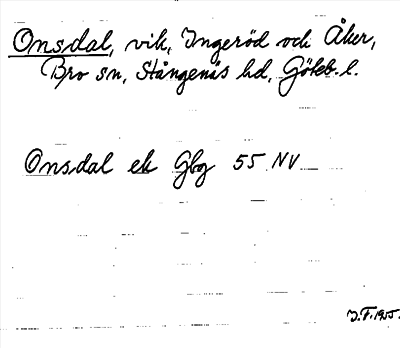 Onsdal, vik, Ingeröd och Åker,
Bro sn, Stångenäs hd, Göteb. l.
Onsdal ek Gbg 55 NV
J.F. 1955.